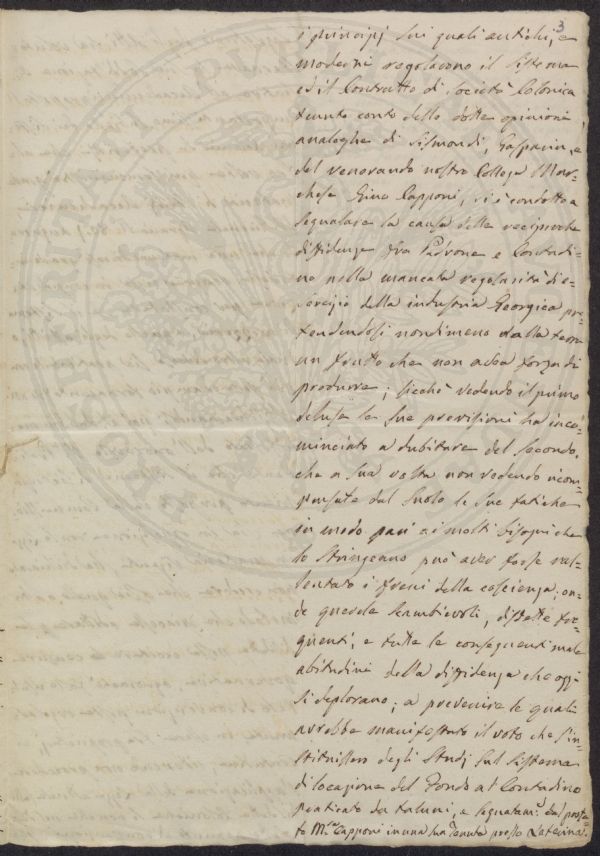 3
i principj sui quali antichi, e
moderni regolarono il Sistema
ed il Contratto di Società Colonica
tenuto conto delle dotte opinioni
analoghe di Sismondi, Gasparin, e
del venerando nostro Collega Mar=
chese Gino Capponi, si è condotto a
segnalare la causa delle reciproche
diffidenze fra Padrone e Contadi=
no nella mancata regolarità di e=
sercizio della industria Georgica pre=
tendendosi nondimeno dalla terra
un frutto che non abbia forza di
produrre; sicchè vedendo il primo
deluse le sue previsioni ha inco=
minciato a dubitare del secondo,
che a sua volta non vedendo ricom=
pensate dal suolo le sue fatiche
in modo pari ai molti bisogni che
lo stringeano può aver forse ral=
lentato i freni della coscienza; on=
de querele scambievoli, disdette fre=
quenti, e tutte le conseguenti male
abitudini della diffidenza che oggi
si deplorano; a prevenire le quali
avrebbe manifestato il voto che s'in=
stituissero degli Studj sul Sistema
di locazione del Fondo al Contadino
praticato da taluni, e segnatam.e dal
to M.se Capponi in una sua Tenuta presso Laterina.